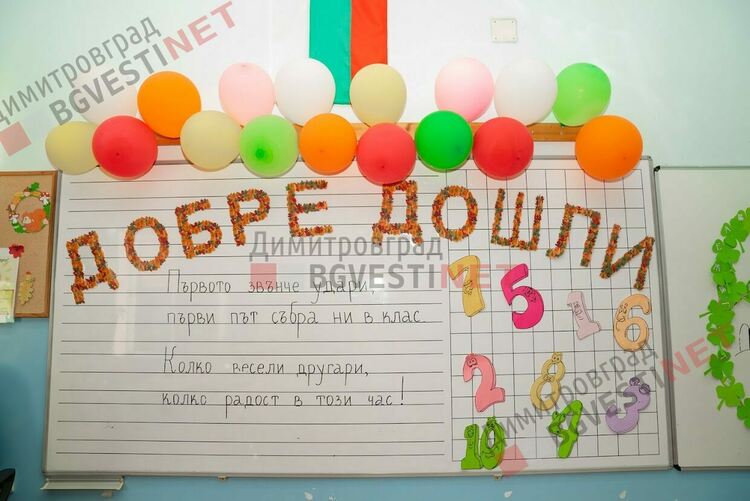 Димитровград
BGVESTINET
ДОБРЕ ДОШЛИ
Димитровград
BGVESTINET
Първото звънче удари,
първи път събра ни в клас.
Колко весели другари,
колко радост в този час!
7 5 1 6
2 8 3
10 4
Димитровград
BGVESTINET